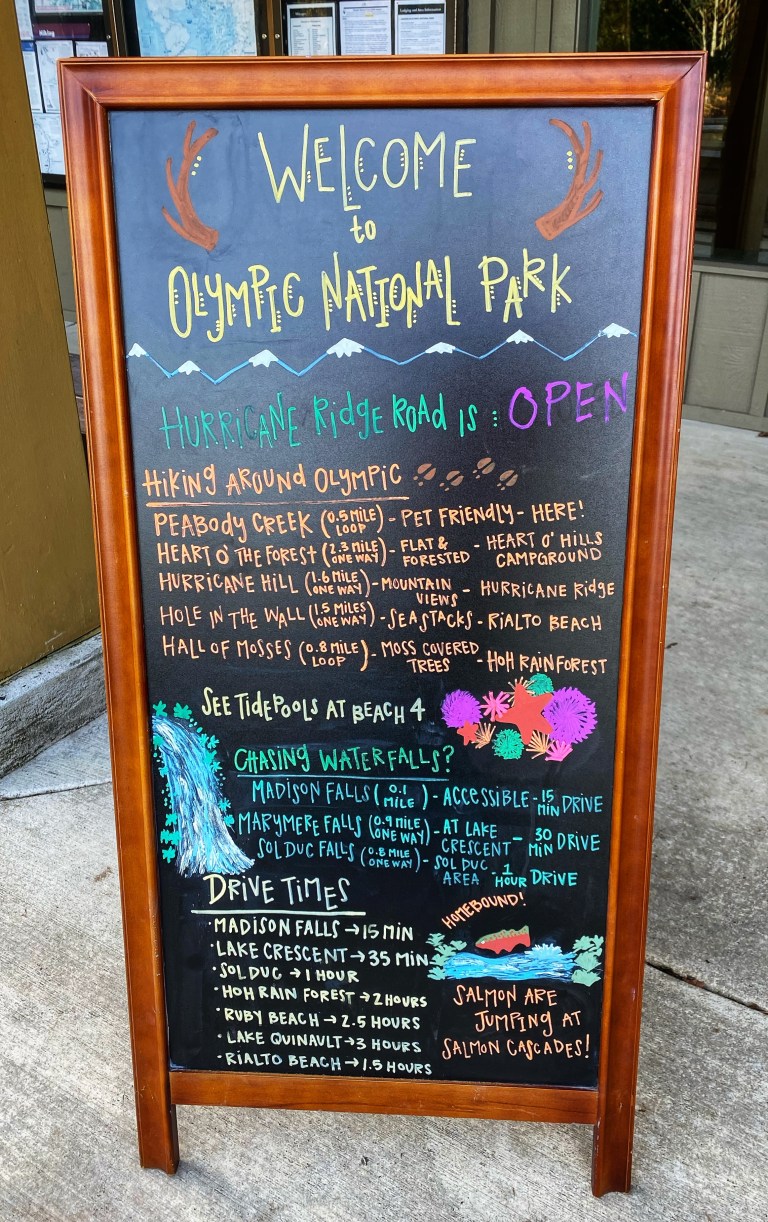 Hiking
WELCOME
to
OLYMPIC NATIONAL PARK
HURRICANE Ridge ROAD iS : OPEN
HiKiNG AROUND OLYMPIC
PEABODY CREEK (0.5 MILE LOOP) - PET FRIENDLY - HERE!
HEART O' THE FOREST (2.3 MILE ONE WAY) - FLAT & FORESTED - HEART O' HILLS CAMPGROUND
HURRICANE HILL (1.6 MILE ONE WAY) - MOUNTAIN VIEWS - HURRICANE RIDGE
HOLE IN THE WALL (1.5 MILES ONE WAY) - SEA STACKS - RIALTO BEACH
HALL OF MOSSES (0.8 MILE LOOP) - MOSS COVERED TREES - HOH RAINFOREST
SEE TidEPOOLS AT BEACH 4
CHASING WATERFALLS?
MADISON FALLS (0.1 MILE) - ACCESSIBLE - 15 MIN DRIVE
MARYMERE FALLS (0.9 MILE ONE WAY) - AT LAKE CRESCENT - 30 MIN DRIVE
SOL DUC FALLS (0.8 MILE ONE WAY) - SOL DUC AREA - 1 HOUR DRIVE
DRIVE TIMES
·MADISON FALLS → 15 MIN
·LAKE CRESCENT → 35 MIN
·SOL DUC → 1 HOUR
·HOH RAIN FOREST → 2 HOURS
·RUBY BEACH → 2.5 HOURS
·LAKE QUINAULT → 3 HOURS
·RIALTO BEACH → 1.5 HOURS
HOMEBOUND!
SALMON ARE
JUMPING AT
SALMON CASCADES!